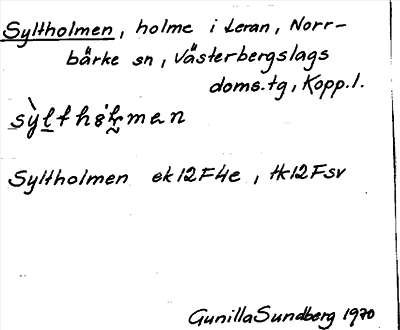 Syltholmen, holme i Leran, Norr-
bärke sn, Västerbergslags
doms.tg, Kopp.l.
Syltholmen ek12F4e, Hk12Fsv
Gunilla Sundberg 1970